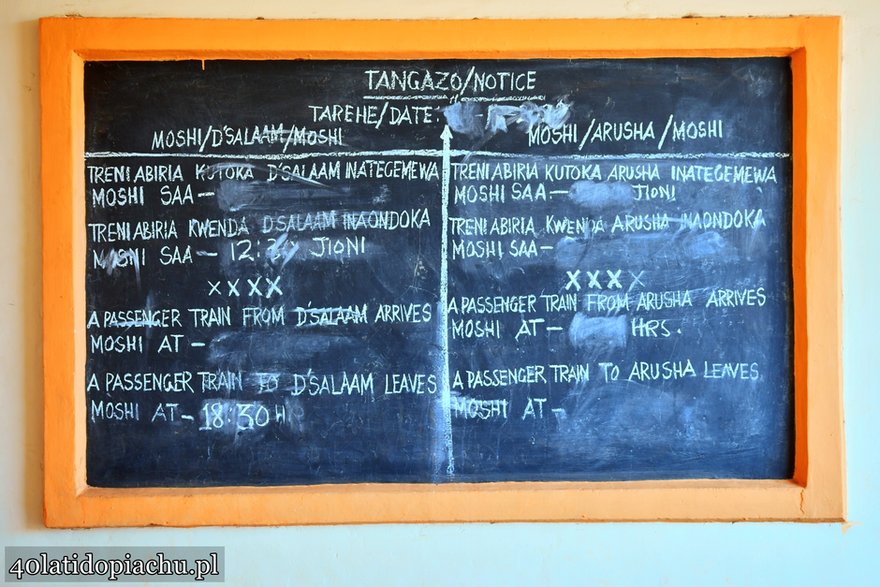 TANGAZO/NOTICE
TAREHE/DATE:
MOSHI/D'SALAAM/MOSHI
TRENI ABIRIA KUTOKA D'SALAAM INATEGEMEWA
MOSHI SAA –
TRENI ABIRIA KWENDA D'SALAAM INAONDOKA
MOSHI SAA – 12:30 JIONI
XXXX
A PASSENGER TRAIN FROM D'SALAAM ARRIVES
MOSHI AT –
A PASSENGER TRAIN TO D'SALAAM LEAVES
MOSHI AT – 18:30 H
MOSHI/ARUSHA/MOSHI
TRENI ABIRIA KUTOKA ARUSHA INATEGEMEWA
MOSHI SAA – JIONI
TRENI ABIRIA KWENDA ARUSHA INAONDOKA
MOSHI SAA –
XXXX
A PASSENGER TRAIN FROM ARUSHA ARRIVES
MOSHI AT – HRS.
A PASSENGER TRAIN TO ARUSHA LEAVES
MOSHI AT –
4olatidopiachu.pl